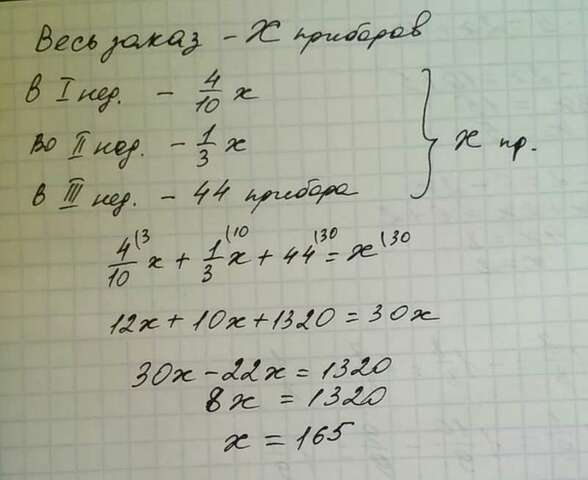 Весь заказ - X приборов
В I нед. - 4/10 x
Во II нед. - 1/3 x
В III нед. - 44 прибора
} x пр.
4/10 (3 x + 1/3 (10 x + 44 (30 = x (30
12x + 10x + 1320 = 30x
30x - 22x = 1320
8x = 1320
x = 165